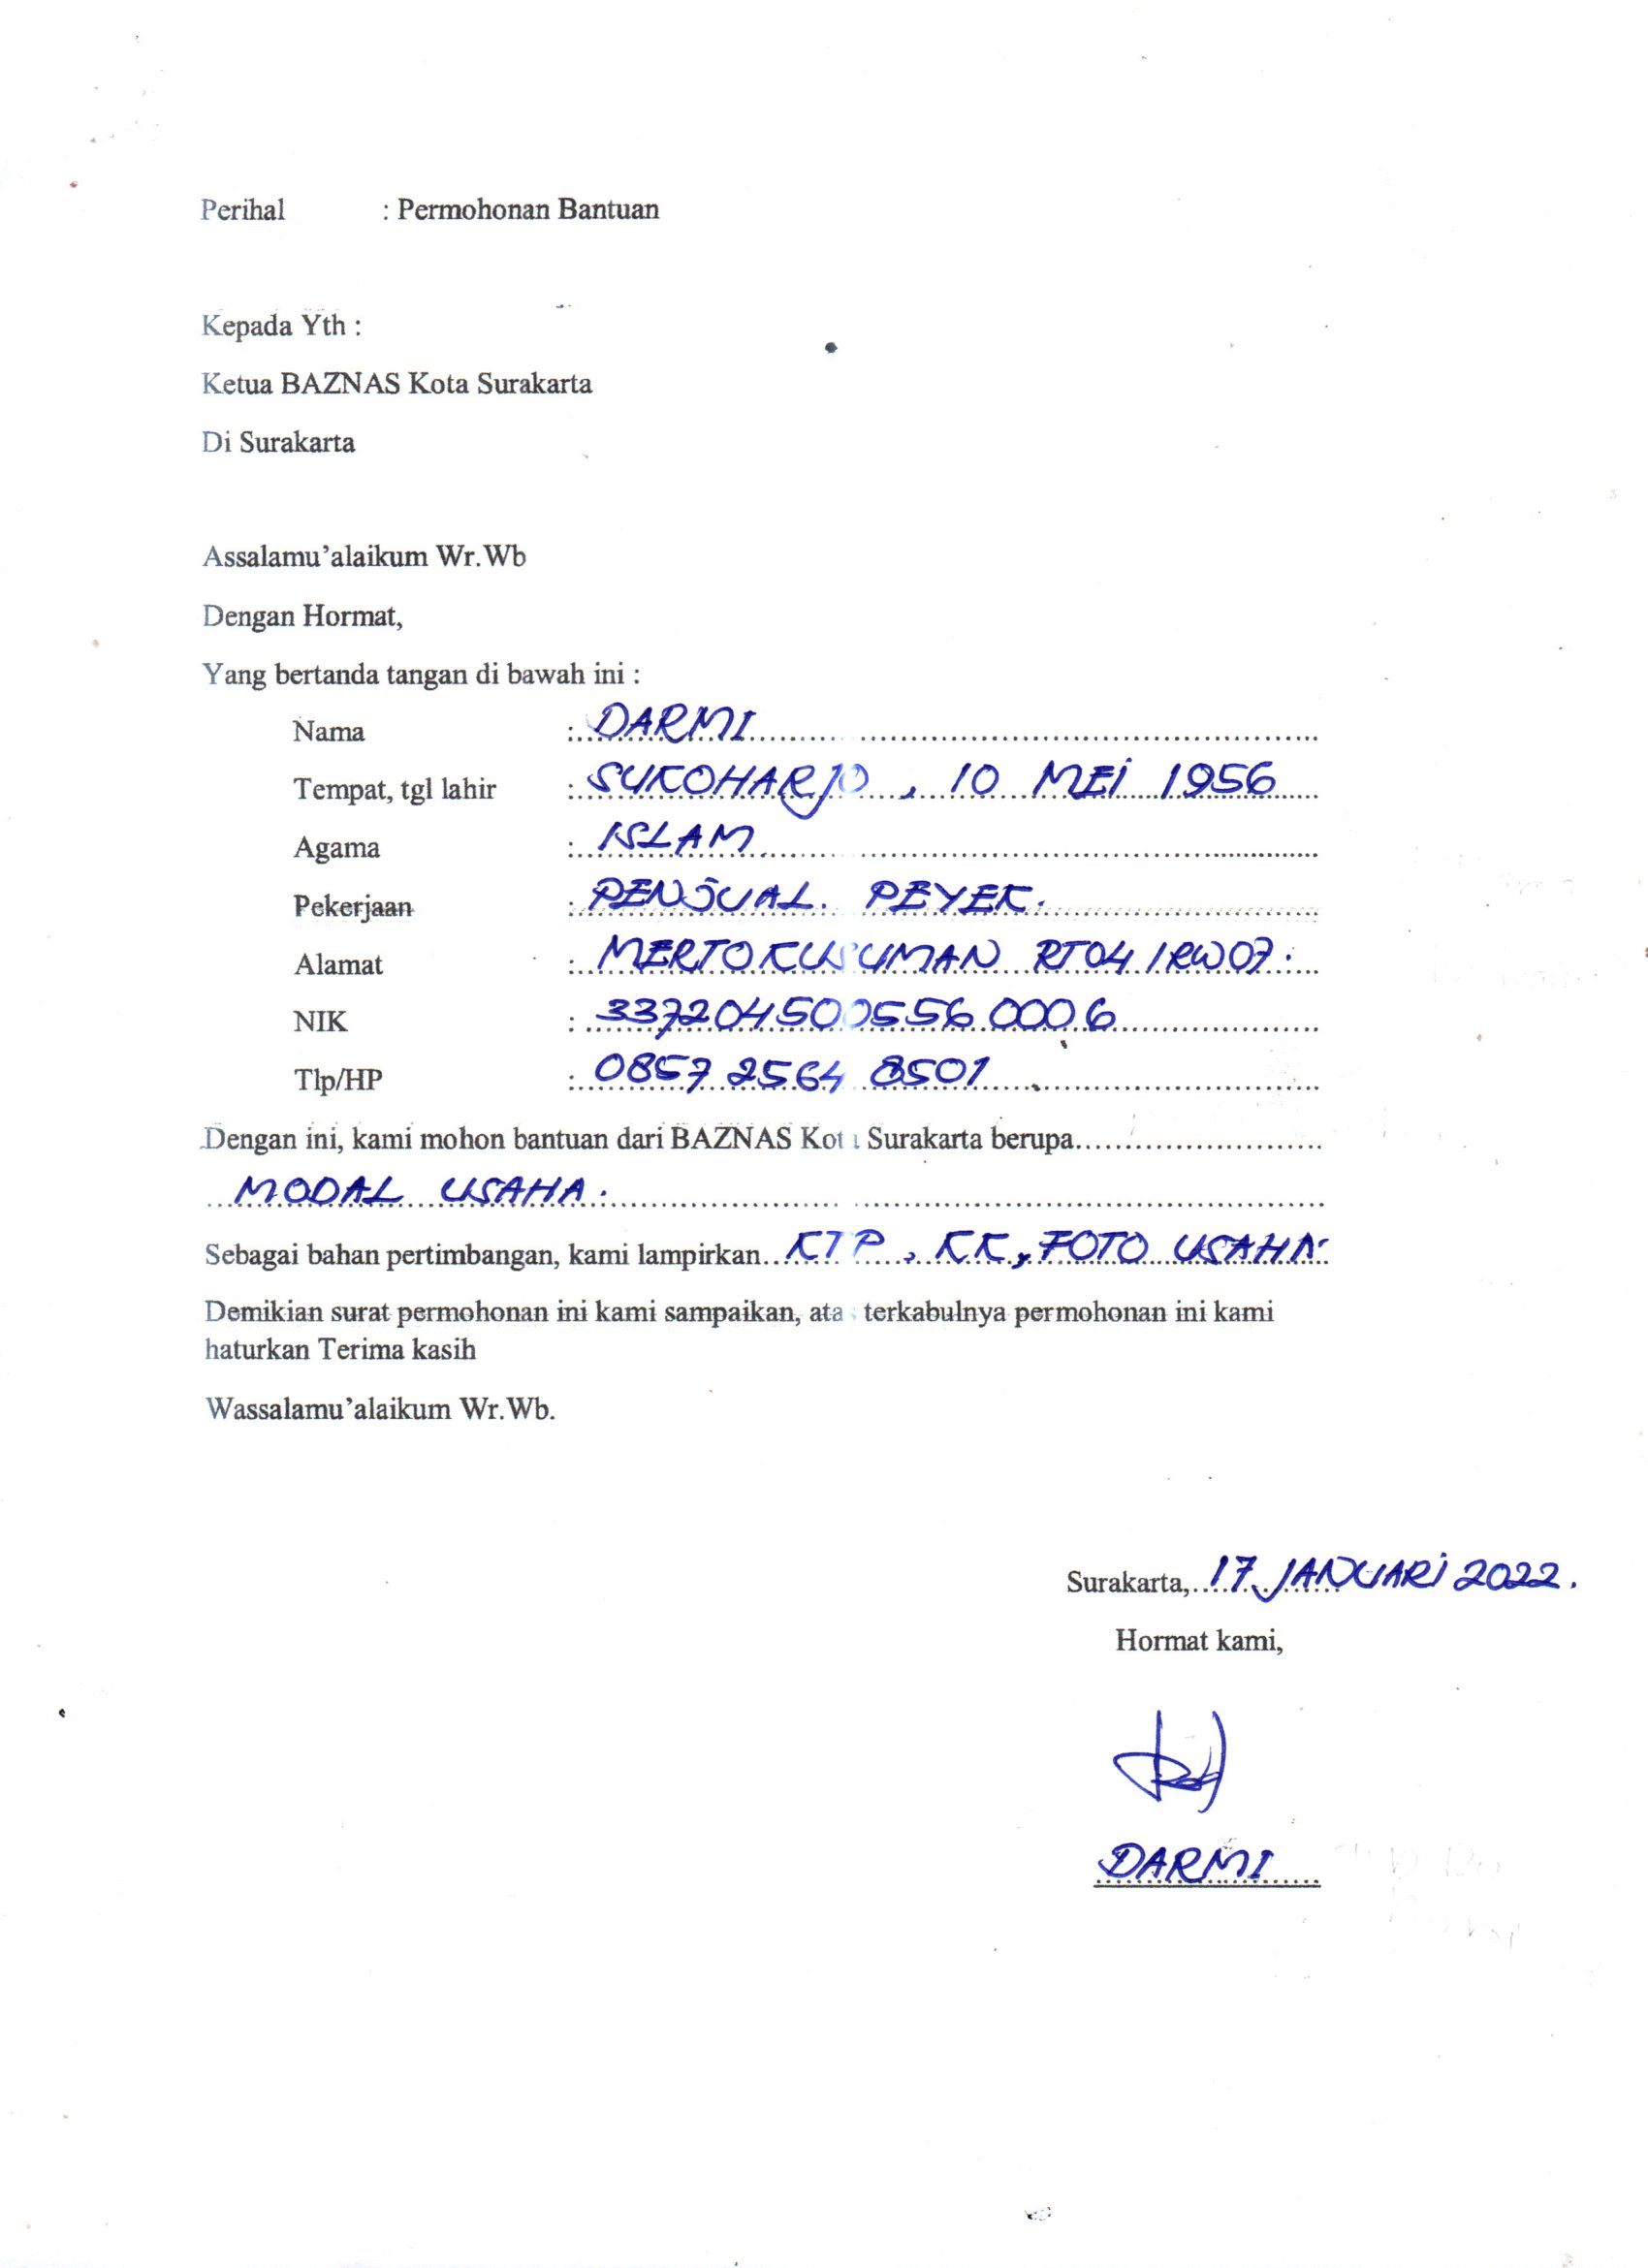 Perihal : Permohonan Bantuan
Kepada Yth :
Ketua BAZNAS Kota Surakarta
Di Surakarta
Assalamu’alaikum Wr.Wb
Dengan Hormat,
Yang bertanda tangan di bawah ini :
Nama : DARMI
Tempat, tgl lahir : SUKOHARJO, 10 MEI 1956
Agama : ISLAM
Pekerjaan : PENJUAL PEYEK.
Alamat : MERTOKUSUMAN RT04/RW07.
NIK : 3372045005560006
Tlp/HP : 0857 2564 8501
Dengan ini, kami mohon bantuan dari BAZNAS Kota Surakarta berupa
MODAL USAHA.
Sebagai bahan pertimbangan, kami lampirkan KTP, KK, FOTO USAHA.
Demikian surat permohonan ini kami sampaikan, atas terkabulnya permohonan ini kami
haturkan Terima kasih
Wassalamu’alaikum Wr.Wb.
Surakarta, 17 JANUARI 2022.
Hormat kami,
DARMI